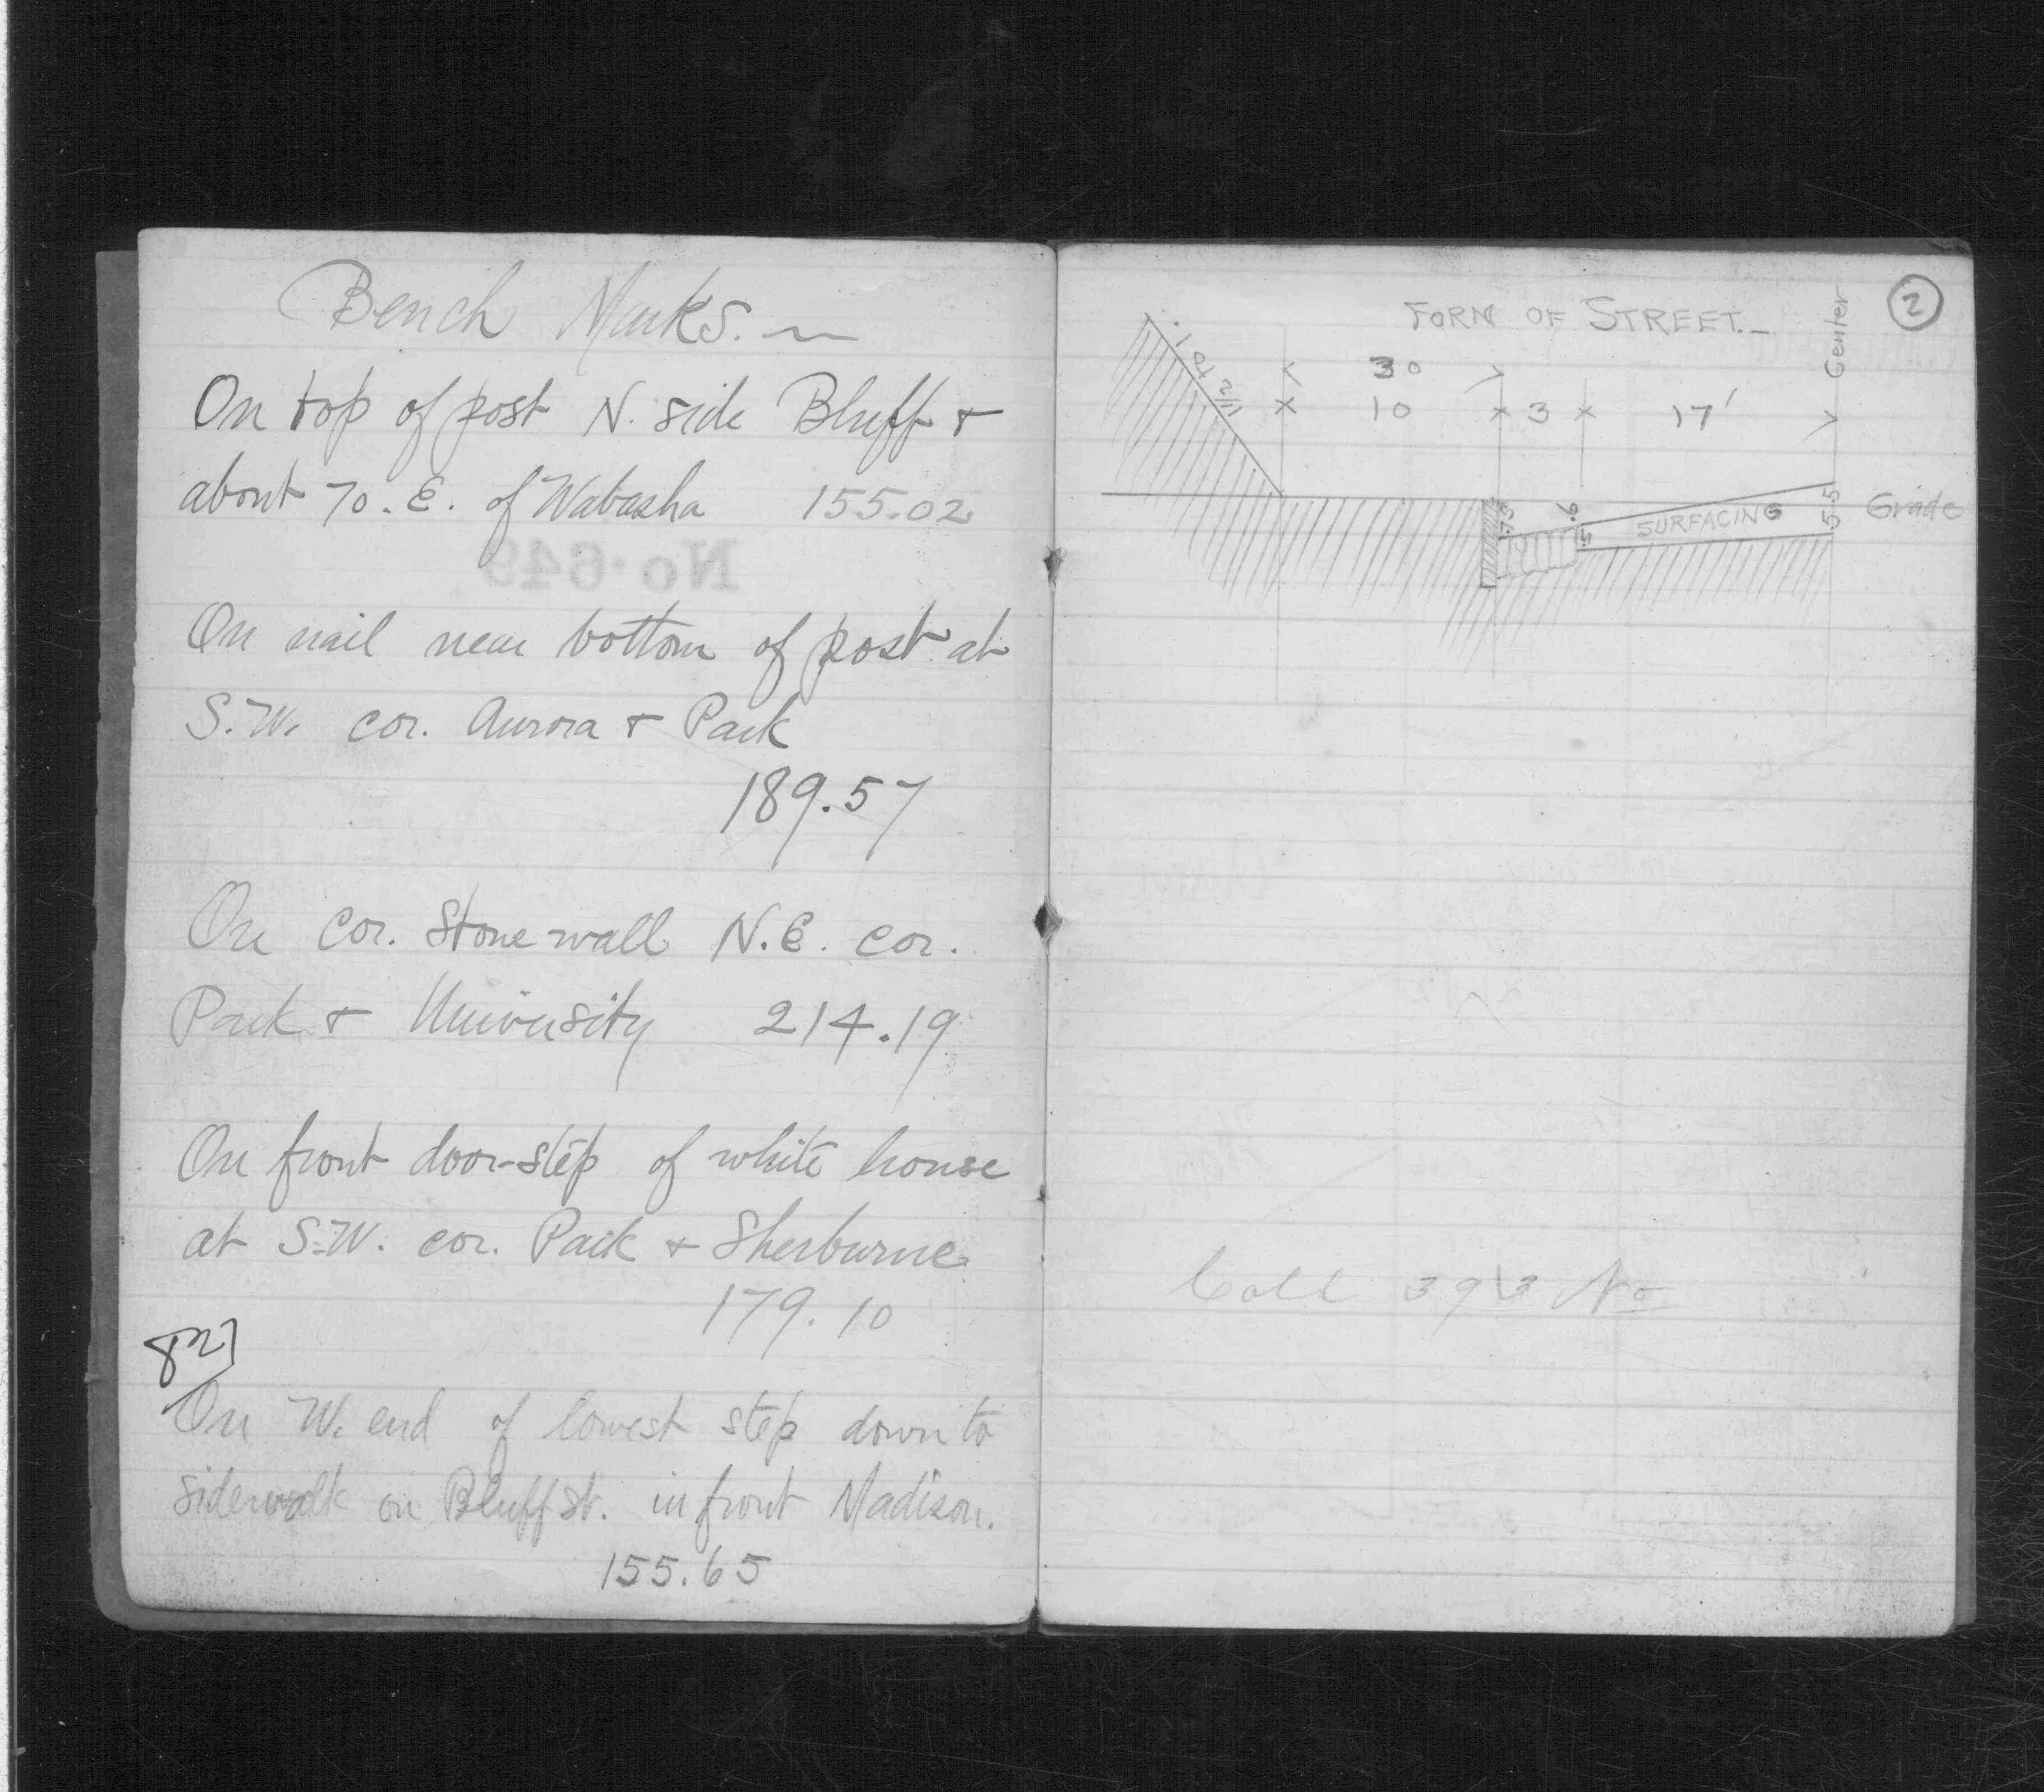 Bench Marks.
On top of post N. side Bluff &
about 70. E. of Wabasha 155.02
No. 649
On nail near bottom of post at
S.W. cor. Aurora & Park
189.57
On cor. Stone wall N.E. cor.
Park & University 214.19
On front door-step of white house
at S.W. cor. Park & Sherburne
179.10
On W. end of lowest step down to
sidewalk on Bluff st. in front Madison.
155.65
2
FORM OF STREET.
Center
1 1/2 TO 1.
30
10 3 17'
.75 .6 .5 SURFACING 5.5 Grade
Call 3913 No